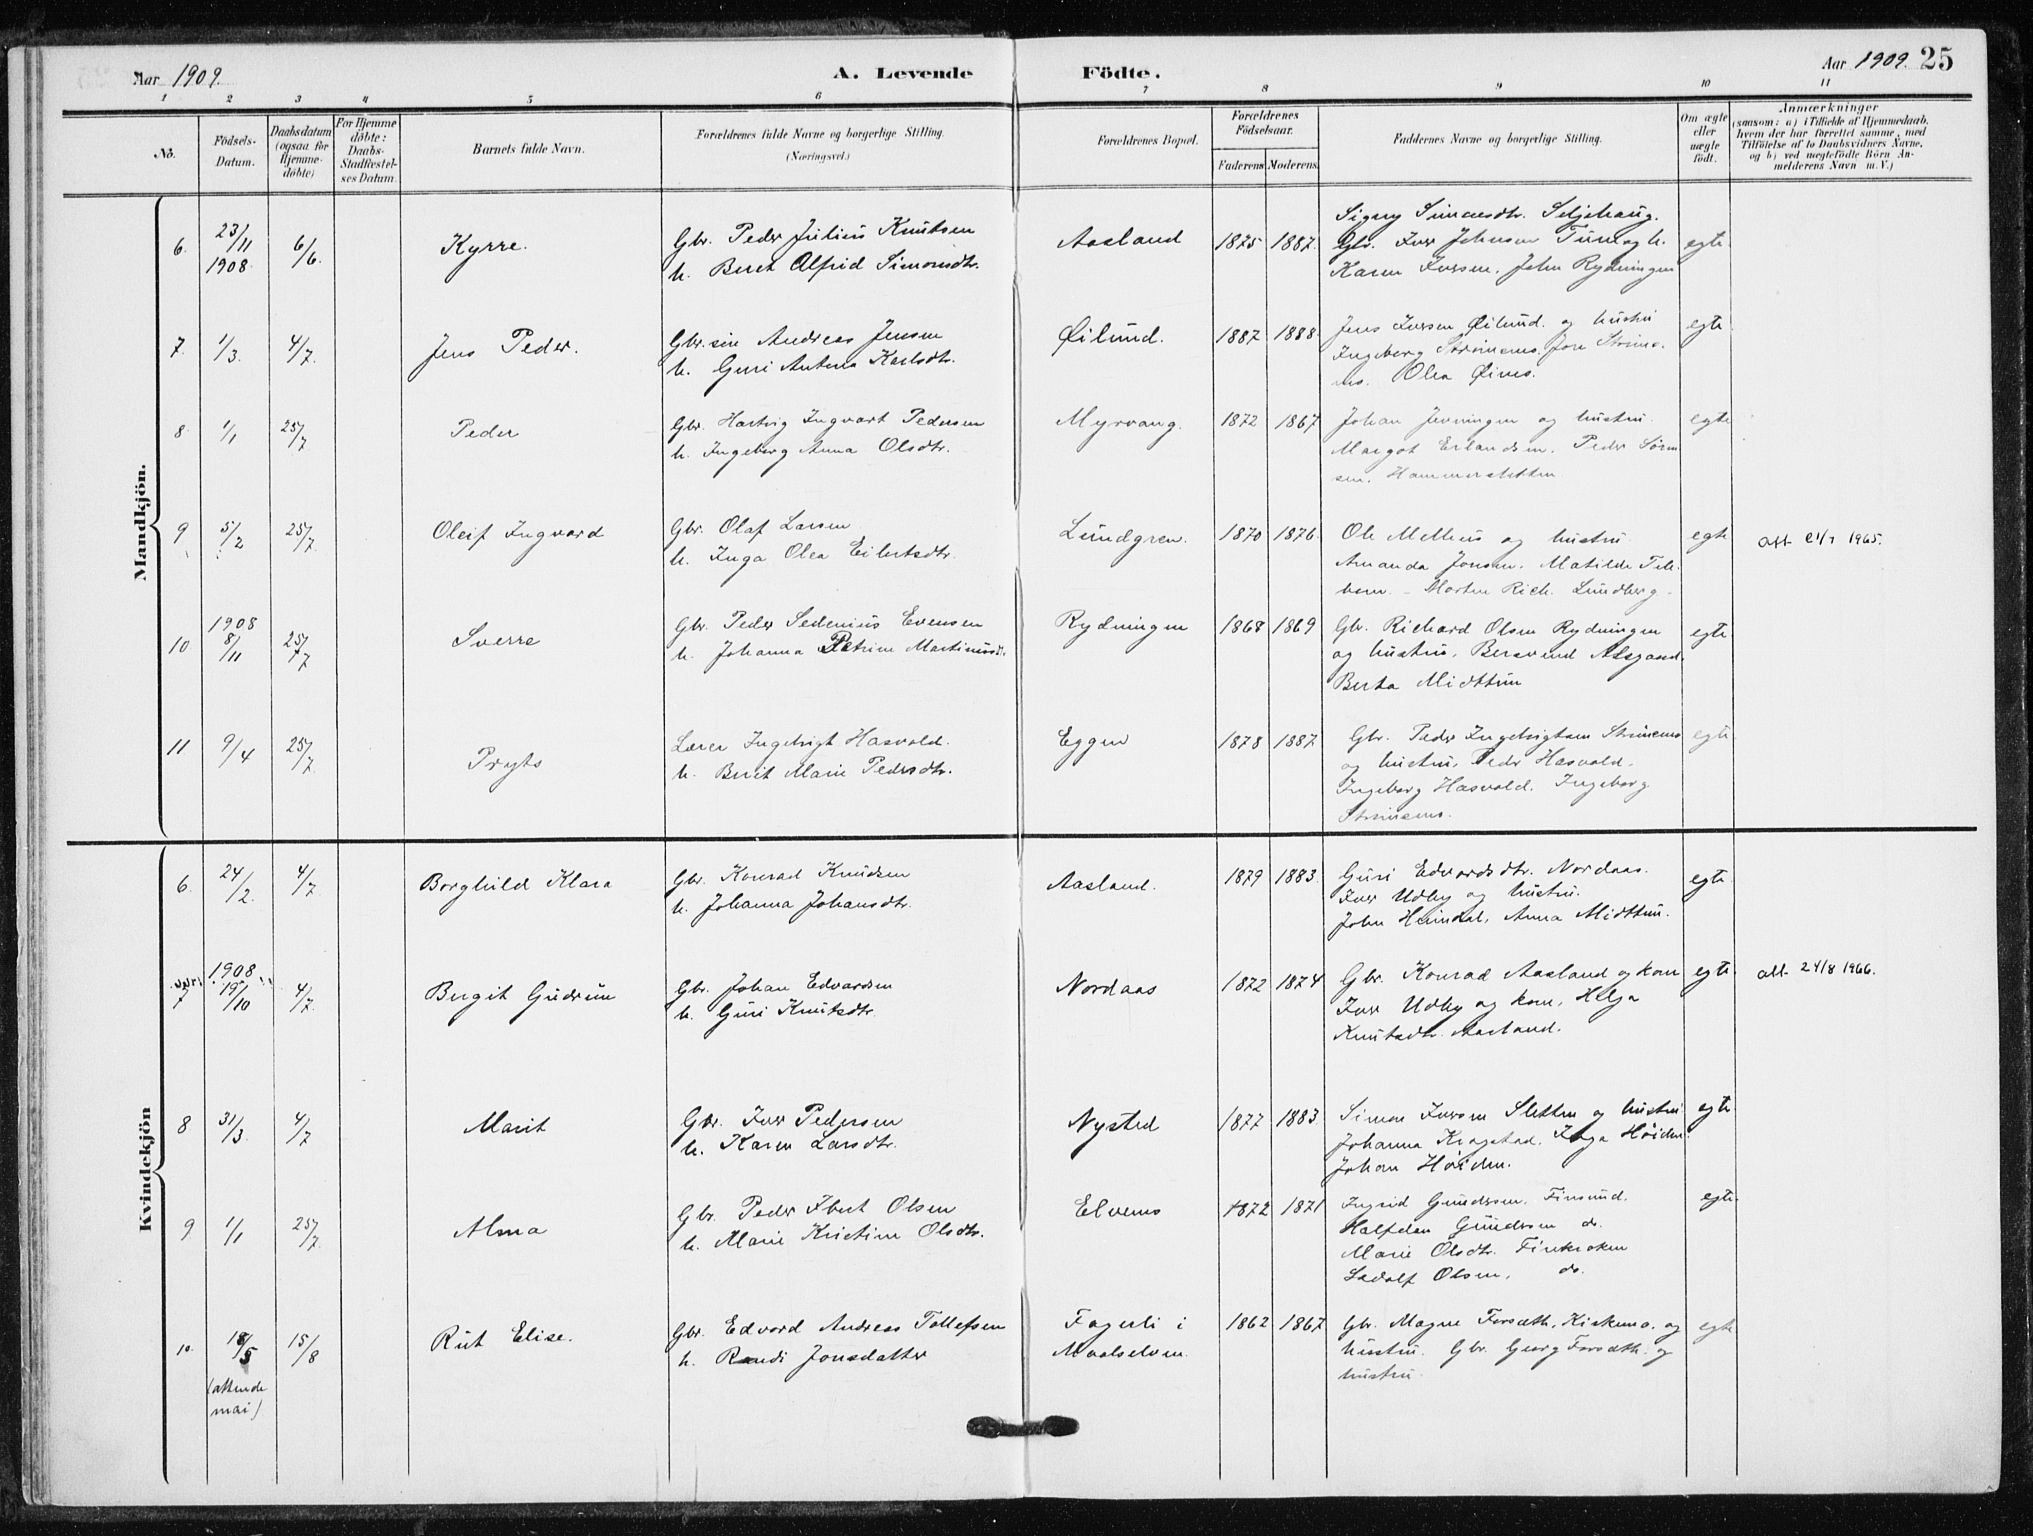 Aar 1909.
A. Levende Födte.
Aar 1909. 25
1 2 3 4 5 6 7 8 9 10 11
No.
Födsels-Datum.
Daabsdatum (ogsaa for Hjemmedöbte)
For Hjemmedöbte: Daabs-Stadfæstelses Datum.
Barnets fulde Navn.
Forældrenes fulde Navne og borgerlige Stilling.
(Næringsvei.)
Forældrenes Bopæl.
Forældrenes Födselsaar.
Faderens Moderens
Faddernes Navne og borgerlige Stilling.
Om ægte eller uægte födt.
Anmærkninger
(saasom: a) i Tilfælde af Hjemmedaab, hvem der har forrettet samme, med Tilföielse af to Daabsvidners Navne, og b) ved uægtefödte Börn Anmelderens Navn m. V.)
Mandkjön.
6. 23/11 1908. 6/6. Kyrre.
Gbr. Peder Julius Knutsen
h. Beret Alfrid Simonsdtr.
Aasland 1875 1887.
Signy Simonsdtr. Seljehaug.
Gbr. Iver Johnsen Tune og h.
Karen Iversen, John Rydningen
egte
7. 1/3. 4/7. Jens Peder.
Gbr.sön Andreas Jensen
h. Guri Antona Karlsdtr.
Øilund. 1887 1888
Jens Iversen Øilund. og hustru
Ingeborg Strömens. Jon Strömens. Olea Øines.
egte
8. 1/1 25/7 Peder
Gbr. Hartvig Ingvart Pedersen
h. Ingeborg Anna Olsdtr.
Myrvang. 1872 1867
Johan Jenningen og hustru.
Margot Erlandsen. Peder Sörensen. Hammersletten
egte
9 5/2 25/7. Oleif Ingvard
Gbr. Olaf Larsen
h. Inga Olea Eilertsdtr.
Lundgren. 1870 1876.
Ole Melhus og hustru
Amanda Jonsen. Matilde
Morten Rich. Lundberg
egte
1965.
10 1908 8/11 25/7 Sverre
Gbr. Peder Sedenius Evensen
h. Johanna Petrine Martinusdtr.
Rydningen 1868 1869
Gbr. Richard Olsen Rydningen
og hustru, Bersvend Alsgaard.
Berta Midttun
egte
11 9/4 25/7. Pryts
Lærer Ingebrigt Hasvold.
h. Berit Marie Pedersdtr.
Eggen 1878 1887
Gbr. Peder Ingebrigtsen Strömens
og hustru, Peder Hasvold.
Ingeborg Hasvold. Ingeborg
Strömens.
egte
Kvindekjön
6. 24/2. 4/7 Borghild Klara
Gbr. Konrad Knudsen
h. Johanna Johansdtr.
Aasland. 1879 1883.
Guri Edvardsdtr. Nordaas.
Iver Udby og hustru.
John Heimdal, Anna Midttun.
egte
7 1908 19/10 4/7. Bergit Gudrun
Gbr. Johan Edvardsen
h. Guri Knutsdtr.
Nordaas 1872 1874
Gbr. Konrad Aasland og kone
Iver Udby og kone, Helga
Knutsdtr. Aasland.
egte
att 24/8 1966.
8 31/3. 4/7 Marit
Gbr. Iver Pedersen
h. Karen Larsdtr.
Nysted 1877 1883.
Simon Iversen Sletten og hustru
Johanna Krogstad. Inga Höiden.
Johan Höiden.
egte
9 1/1 25/7. Alma
Gbr. Peder Ebert Olsen
h. Marie Kristine Olsdtr.
Elvenes 1872 1871
Ingrid Gundersen. Finsund.
Halfdan Gundersen do.
Marie Olsdtr. Finkroken
Ladolf Olsen, do.
egte.
10. 18/5 15/8 Rut Elise.
(attende mai)
Gbr. Edvard Andreas Tollefsen
h. Randi Jonsdatter
Fagerli i Maalselven. 1862 1867
Gbr. Magne Forsæth, Kirkemo, og
hustru. Gbr. Georg Forsæth. og
hustru
egte